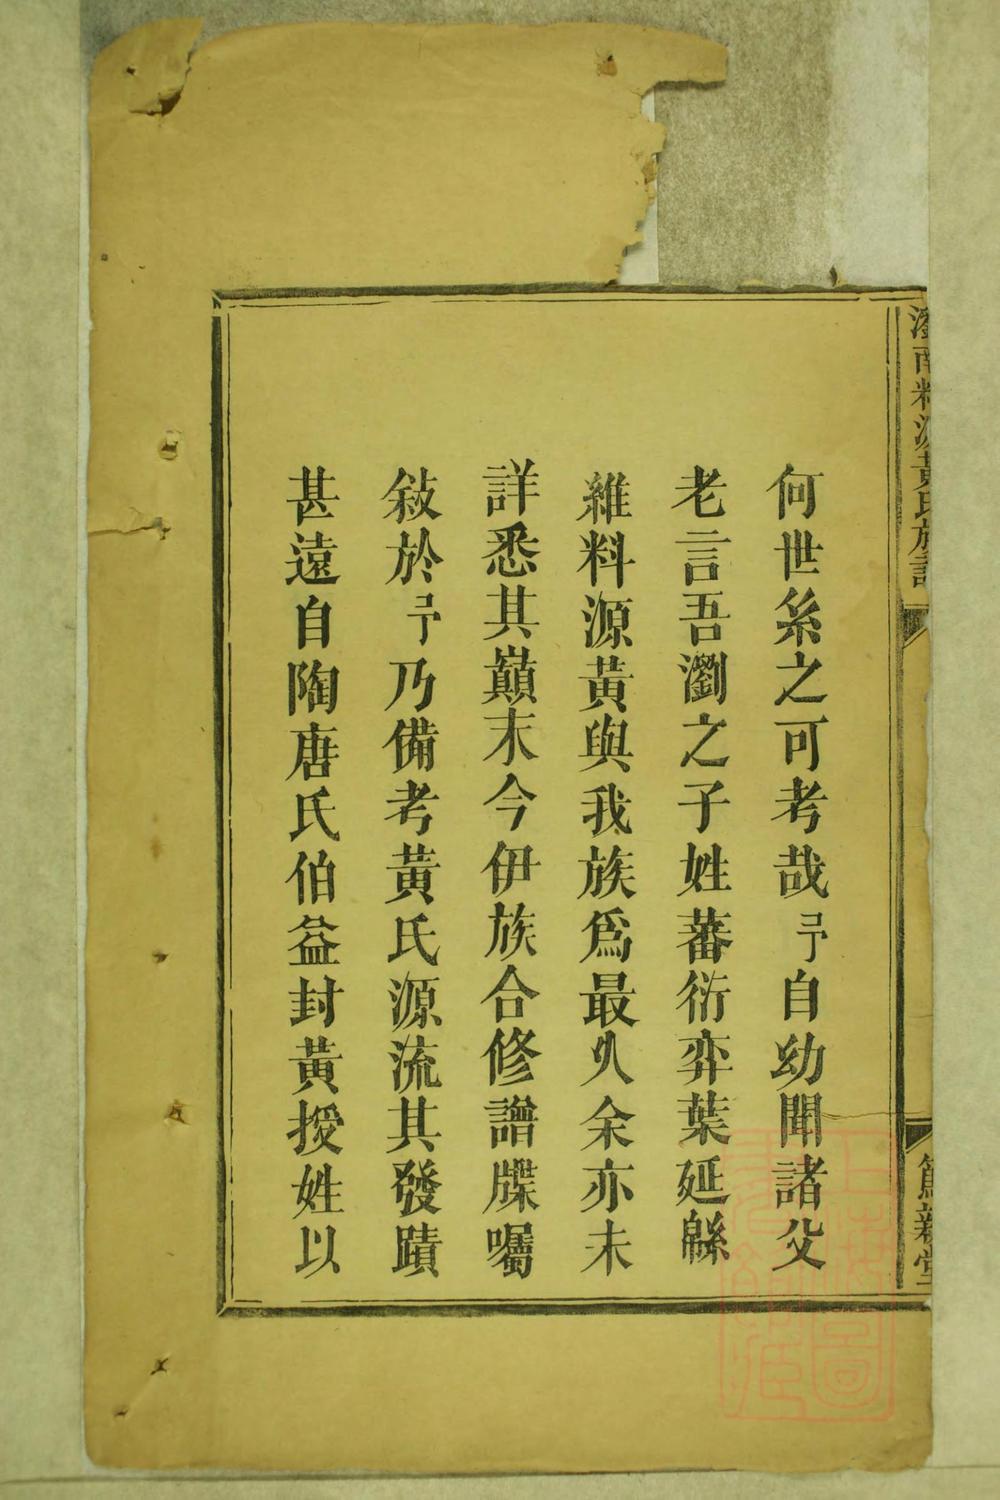 瀏南料源黃氏族譜
篤親堂
何世系之可考哉予自幼聞諸父
老言吾瀏之子姓蕃衍弈葉延緜
維料源黃與我族爲最久余亦未
詳悉其巔末今伊族合修譜牒囑
敍於予乃備考黃氏源流其發蹟
甚遠自陶唐氏伯益封黃授姓以